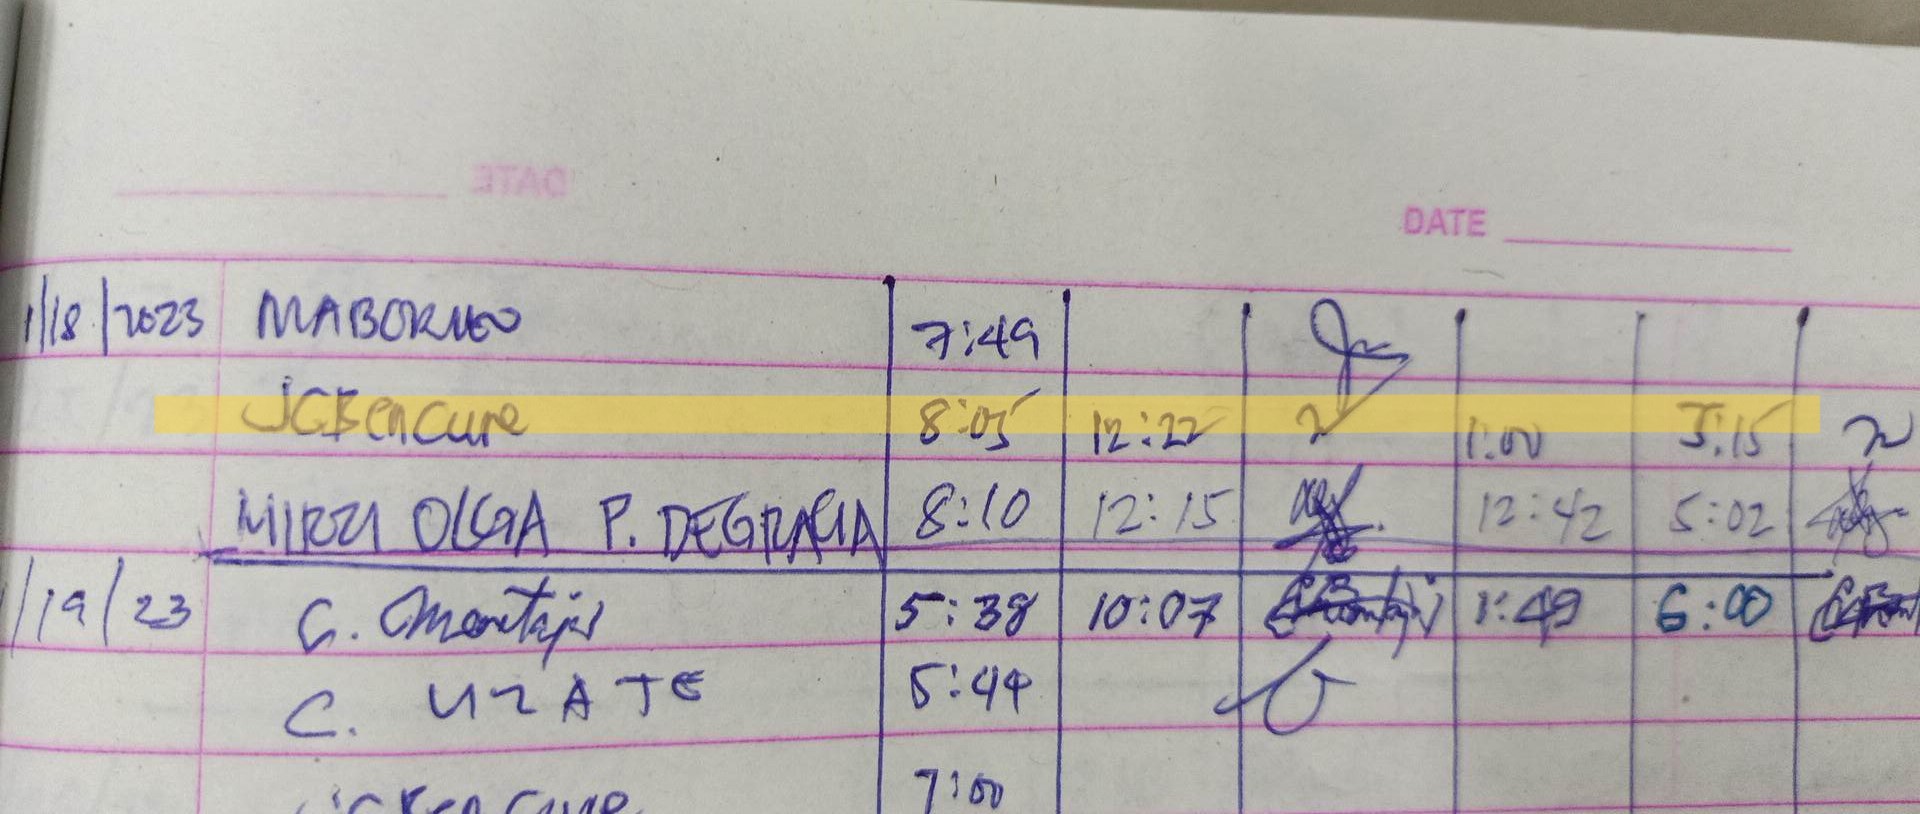 DATE
DATE
1/18/2023 MABORNEO 7:49
JCBencure 8:05 12:22 1:00 5:15
MIRZI OLGA P. DEGRACIA 8:10 12:15 12:42 5:02
1/19/23 C. Montejo 5:38 10:07 1:49 6:00
C. UZATE 5:44
JCBencure 7:00